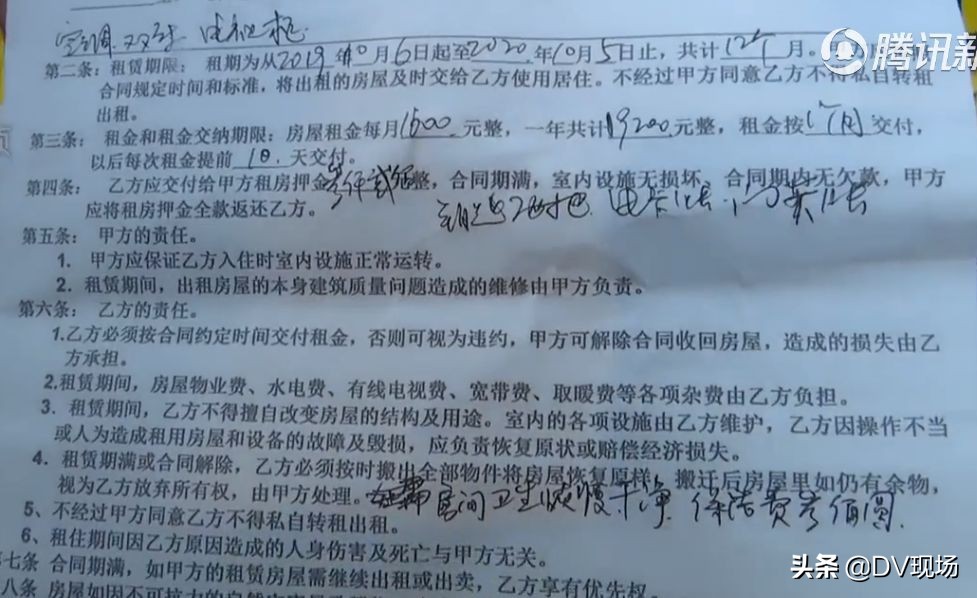 空调 双
腾讯新
第二条：租赁期限： 租期为从2019年10月6日起至2020年10月5日止，共计12个月。
合同规定时间和标准，将出租的房屋及时交给乙方使用居住。不经过甲方同意乙方不得私自转租
出租。
第三条： 租金和租金交纳期限：房屋租金每月1600元整，一年共计19200元整，租金按 交付，
以后每次租金提前10天交付。
第四条： 乙方应交付给甲方租房押金 整，合同期满，室内设施无损坏、合同期内无欠款，甲方
应将租房押金全款返还乙方。 电卡1张
第五条： 甲方的责任。
1. 甲方应保证乙方入住时室内设施正常运转。
2. 租赁期间，出租房屋的本身建筑质量问题造成的维修由甲方负责。
第六条： 乙方的责任。
1.乙方必须按合同约定时间交付租金，否则可视为违约，甲方可解除合同收回房屋，造成的损失由乙
方承担。
2.租赁期间，房屋物业费、水电费、有线电视费、宽带费、取暖费等各项杂费由乙方负担。
3．租赁期间，乙方不得擅自改变房屋的结构及用途。室内的各项设施由乙方维护，乙方因操作不当
或人为造成租用房屋和设备的故障及毁损，应负责恢复原状或赔偿经济损失。
4．租赁期满或合同解除，乙方必须按时搬出全部物件将房屋恢复原样，搬迁后房屋里如仍有余物，
视为乙方放弃所有权，由甲方处理。 房间卫生 干净 保洁费叁佰圆
5、不经过甲方同意乙方不得私自转租出租。
6、租住期间因乙方原因造成的人身伤害及死亡与甲方无关。
第七条 合同期满，如甲方的租赁房屋需继续出租或出卖，乙方享有优先权。
八条 房屋如因不可抗力的自然
头条 @DV现场